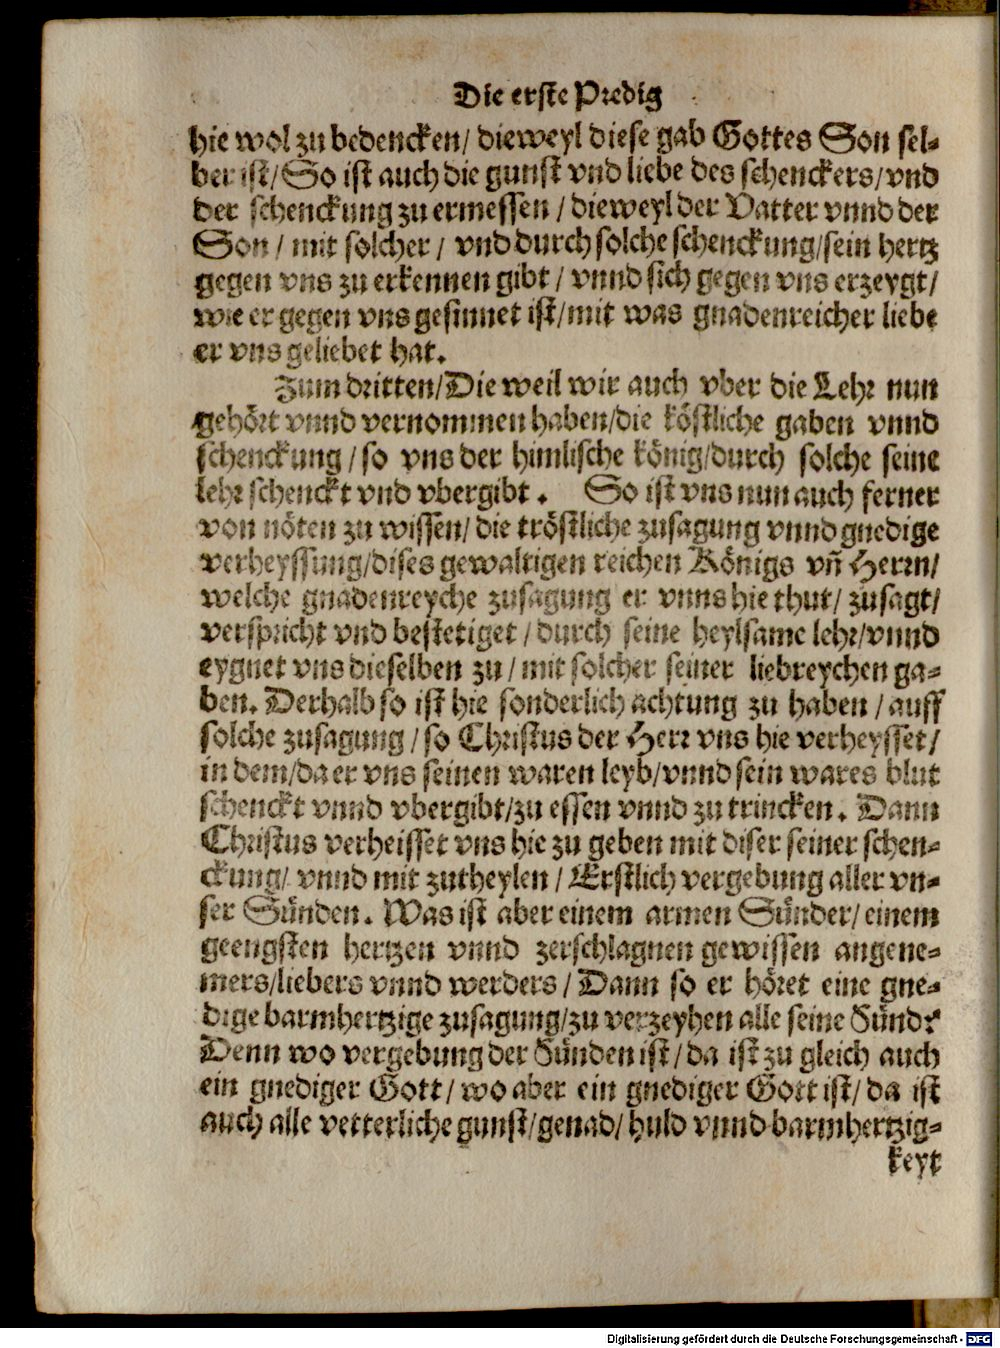 Die erste Predig
hie wol zu bedencken/ dieweyl diese gab Gottes Son sel-
ber ist/ So ist auch die gunst vnd liebe des schenckers/ vnd
der schenckung zu ermessen / dieweyl der Vatter vnnd der
Son / mit solcher / vnd durch solche schenckung/ sein hertz
gegen vns zu erkennen gibt / vnnd sich gegen vns erzeygt/
wie er gegen vns gesinnet ist/ mit was gnadenreicher liebe
er vns geliebet hat.
Zum dritten/ Die weil wir auch vber die Lehr nun
gehört vnnd vernommen haben/ die köstliche gaben vnnd
schenckung / so vns der himlische könig/ durch solche seine
lehr schenckt vnd vbergibt. So ist vns nun auch ferner
von nöten zu wissen/ die tröstliche zusagung vnnd gnedige
verheyssung/ dises gewaltigen reichen Königs vñ Herrn/
welche gnadenreyche zusagung er vnns hie thut/ zusagt/
verspricht vnd bestetiget / durch seine heylsame lehr/ vnnd
eygnet vns dieselben zu / mit solcher seiner liebreychen ga-
ben. Derhalb so ist hie sonderlich achtung zu haben / auff
solche zusagung / so Christus der Herr vns hie verheysset/
in dem/ da er vns seinen waren leyb/ vnnd sein wares blut
schenckt vnnd vbergibt/ zu essen vnnd zu trincken. Dann
Christus verheisset vns hie zu geben mit diser seiner schen-
ckung/ vnnd mit zutheylen / Erstlich vergebung aller vn-
ser Sünden. Was ist aber einem armen Sünder/ einem
geengsten hertzen vnnd zerschlagnen gewissen angene-
mers/ liebers vnnd werders / Dann so er höret eine gne-
dige barmhertzige zusagung/ zu verzeyhen alle seine Sünd?
Denn wo vergebung der Sünden ist / da ist zu gleich auch
ein gnediger Gott / wo aber ein gnediger Gott ist/ da ist
auch alle vetterliche gunst/ genad/ huld vnnd barmhertzig-
keyt
Digitalisierung gefördert durch die Deutsche Forschungsgemeinschaft - DFG